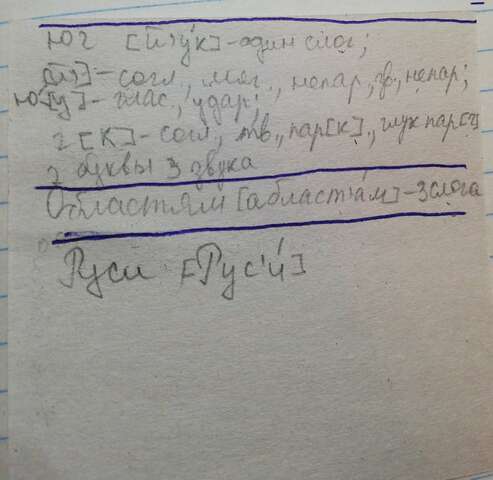 юг [й'у́к] - один слог;
[й'] - согл., мяг., непар, зв., непар;
ю [у] - глас., удар;
г [К] - согл, тв., пар[к]., глух пар[г]
2 буквы 3 звука
Областям [абласт'а́м] - 3 слога
Руси [Рус'и́]